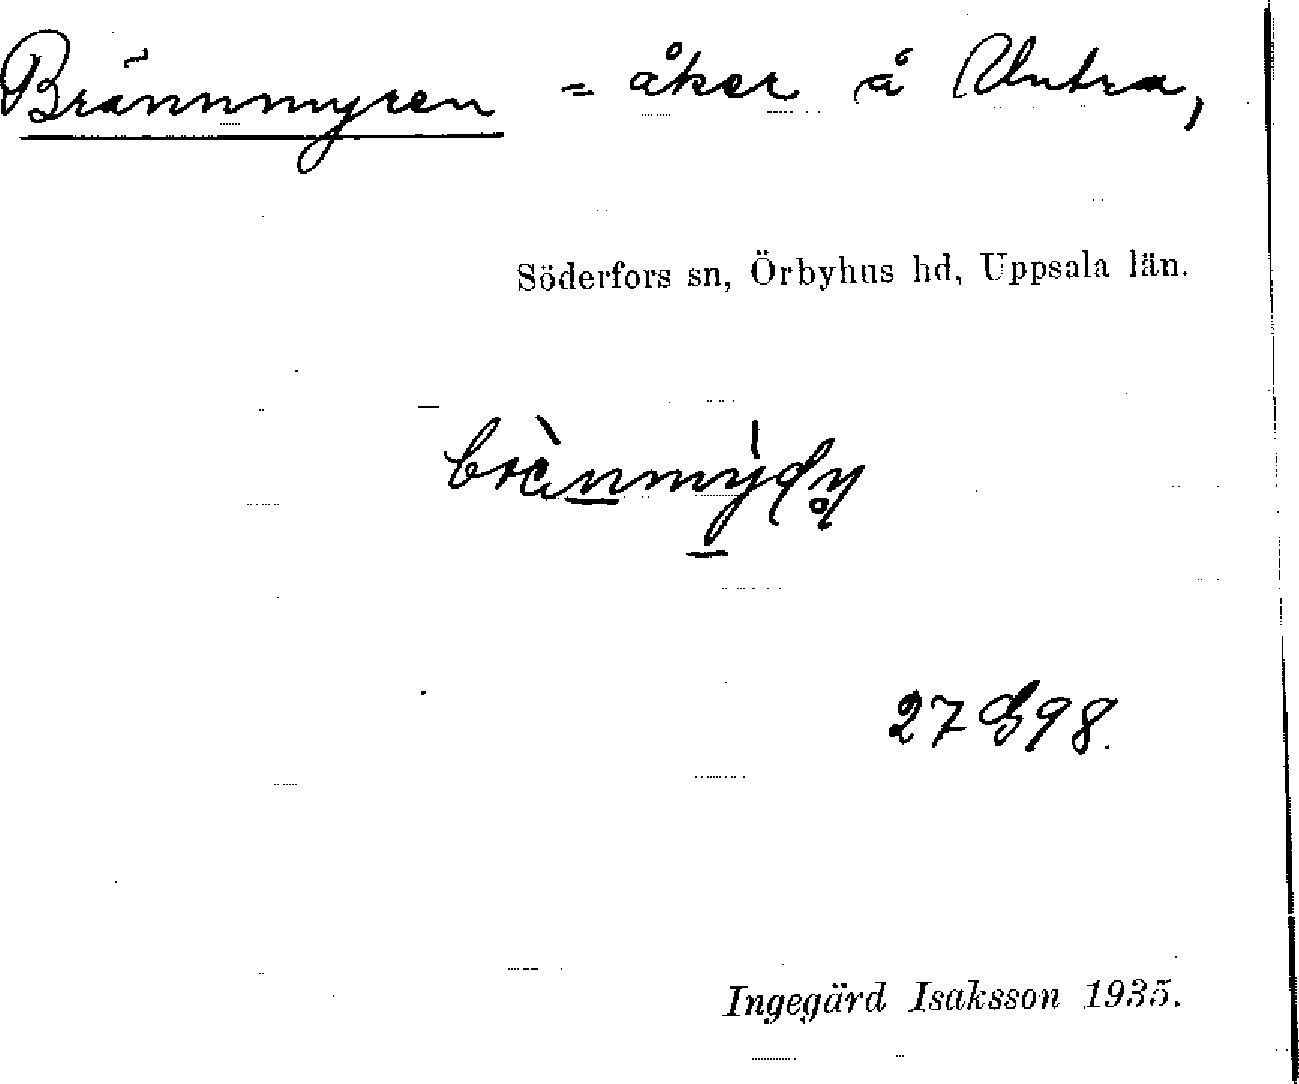 Brännmyren = åker å Untra,
Söderfors sn, Örbyhus hd, Uppsala län.
27 G 98.
Ingegärd Isaksson 1935.